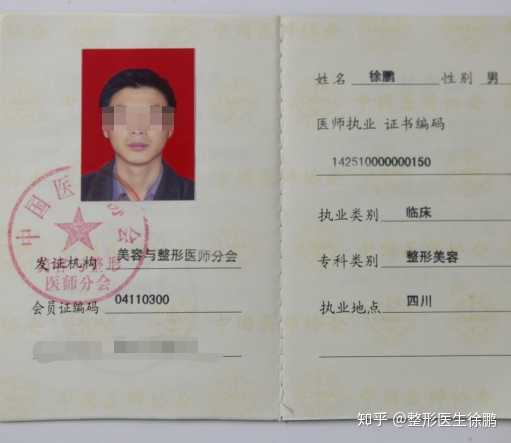 中国医
会
美容与整形
医师分会
发证机构 美容与整形医师分会
会员证编码 04110300
姓名 徐鹏 性别 男
医师执业 证书编码
142510000000150
执业类别 临床
专科类别 整形美容
执业地点 四川
知乎 @整形医生徐鹏